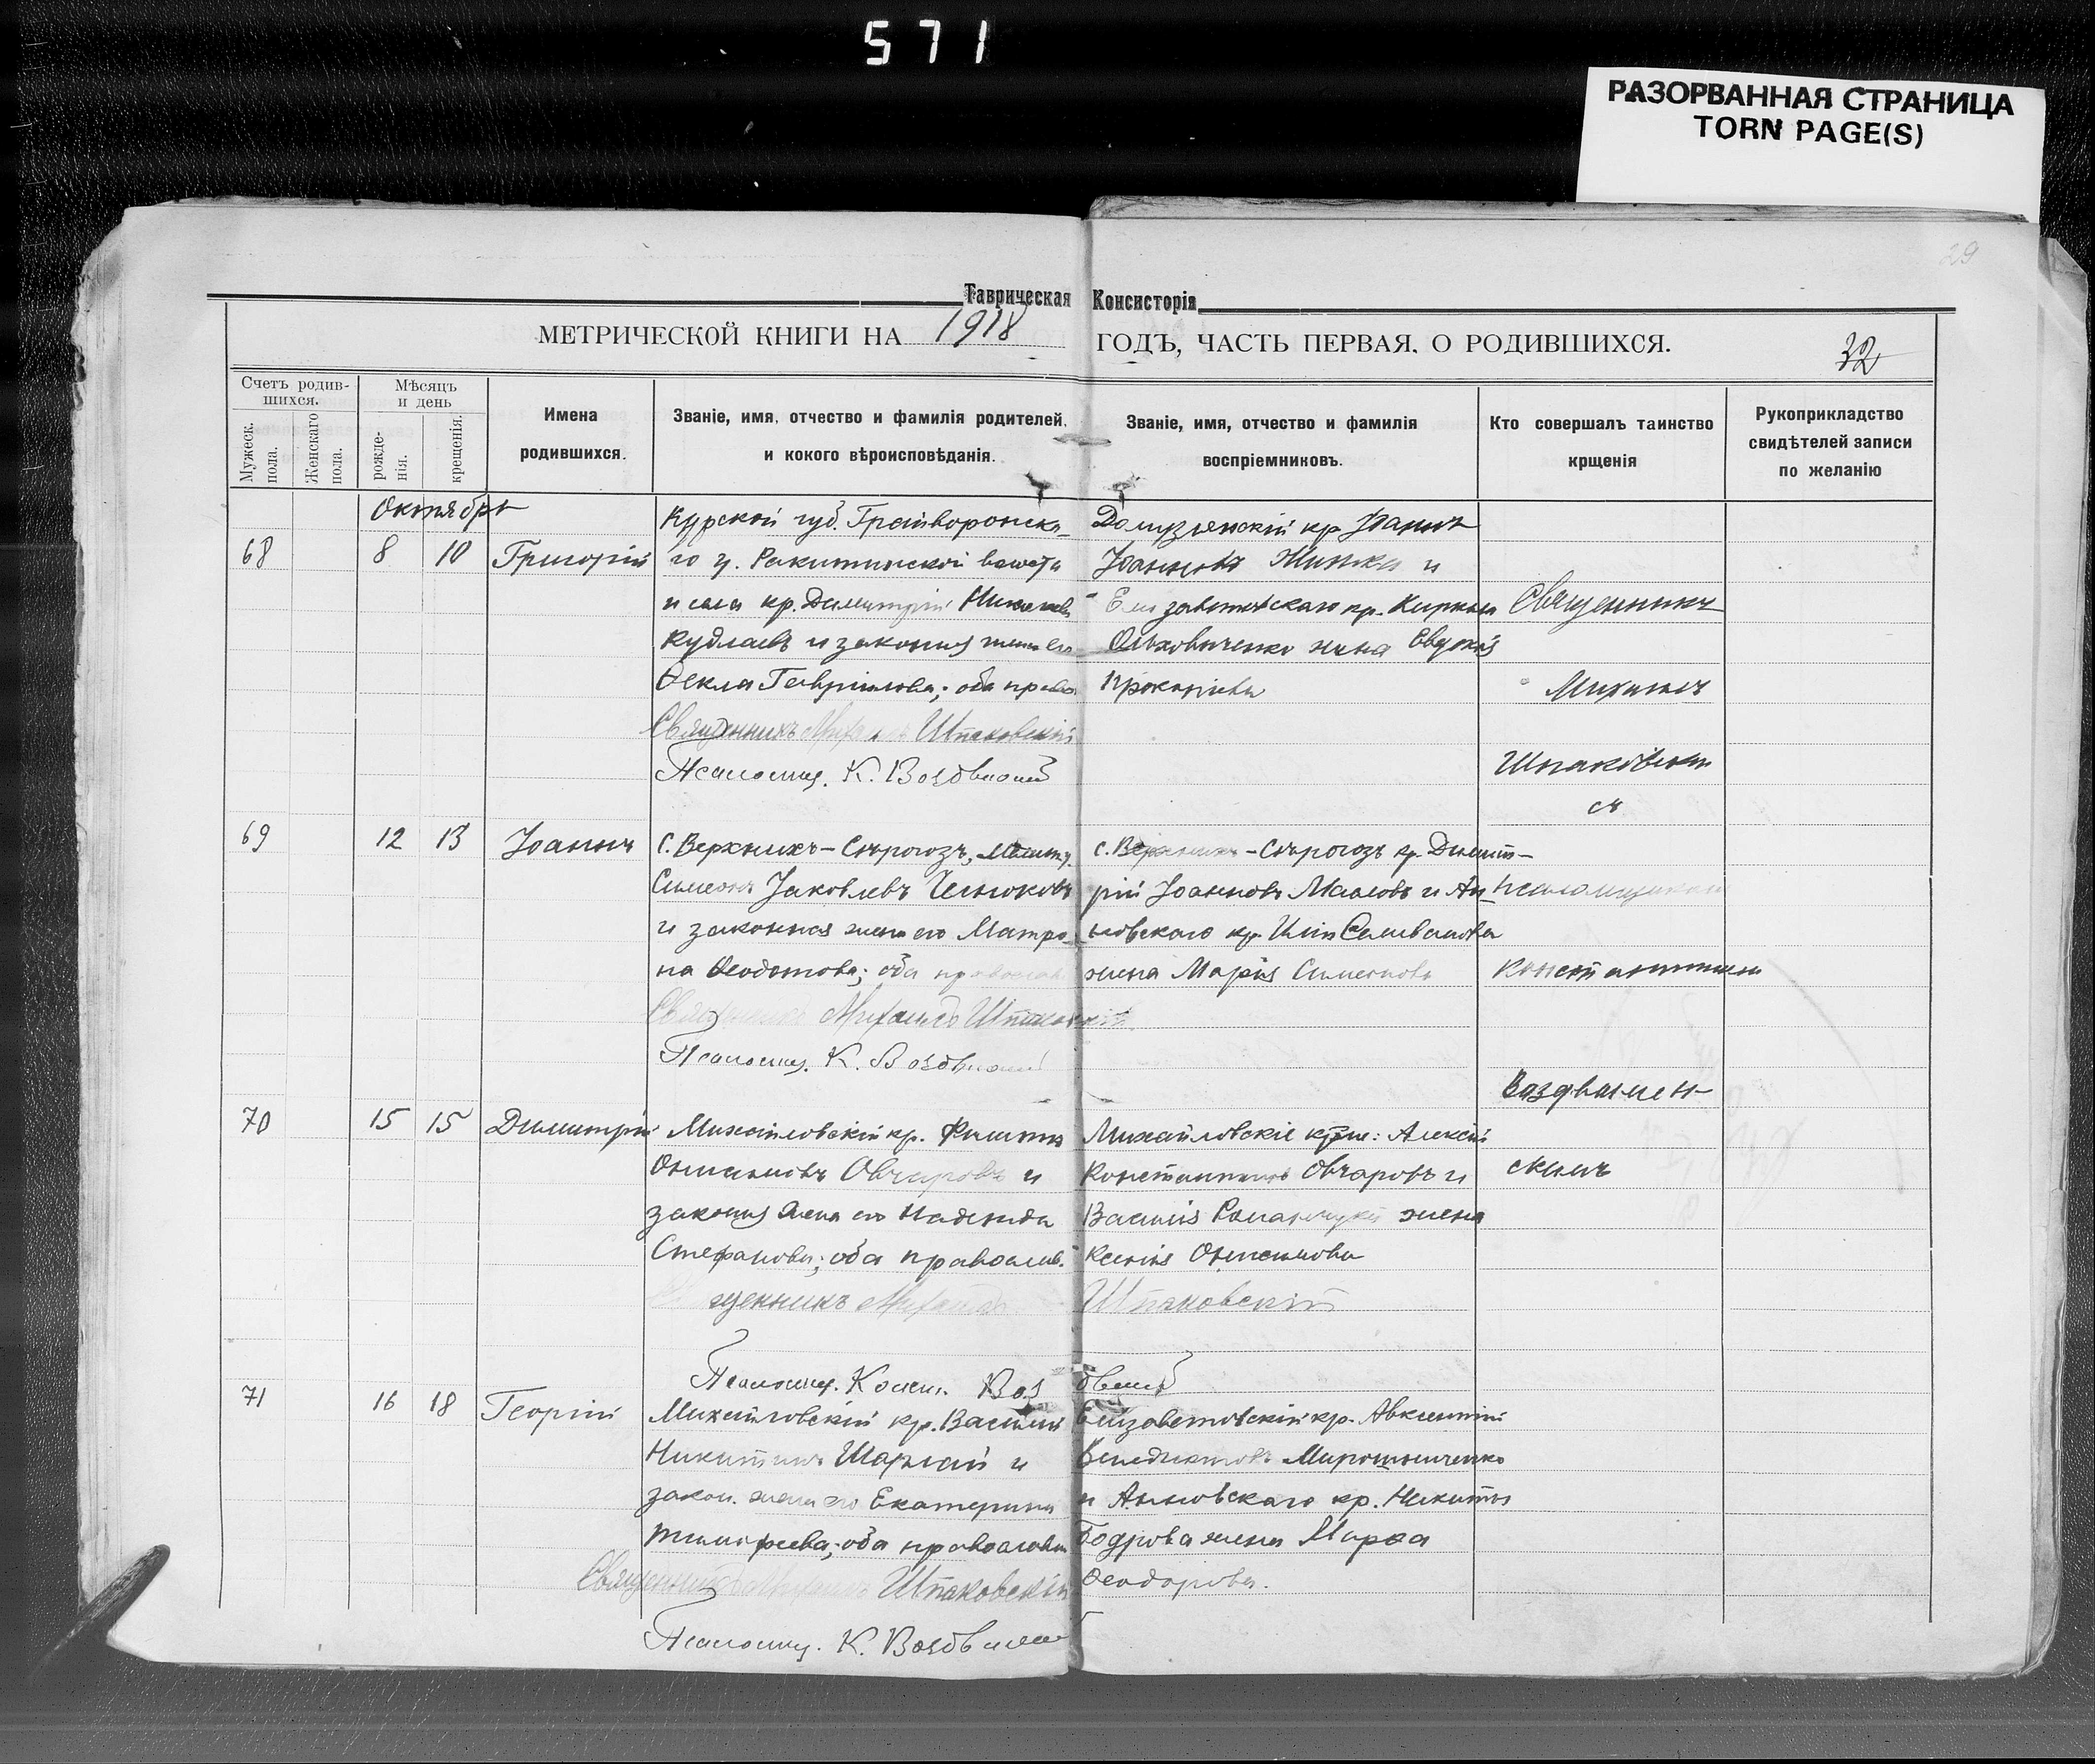 571
РАЗОРВАННАЯ СТРАНИЦА
TORN PAGE(S)
29
Таврическая Консисторія
МЕТРИЧЕСКОЙ КНИГИ НА 1918 ГОДЪ, ЧАСТЬ ПЕРВАЯ, О РОДИВШИХСЯ.
32
Счетъ родив-
шихся.
Мужеск. пола.
Женскаго пола.
Мѣсяцъ
и день
рожде-
нія.
крещенія.
Имена
родившихся.
Званіе, имя, отчество и фамилія родителей,
и кокого вѣроисповѣданія.
Званіе, имя, отчество и фамилія
воспріемниковъ.
Кто совершалъ таинство
крщенія
Рукоприкладство
свидѣтелей записи
по желанію
Октябрь
68 8 10 Григорій
Курской губ. Грайворонска-
го у. Ракитинской
и села кр. Димитрій
и законная жена его
Ѳекла Гавріилова; оба право
Священникъ Михаилъ Шпаковскій
Псаломщ. К. Воздвиж
кр. Іоаннъ
Іоанновъ и
Елизаветовскаго кр.
Ольховиченко жена Евдокія
Прокопіева
Священникъ
Михаилъ
Шпаковскій
съ
69 12 13 Іоаннъ
С. Верхнихъ-Сѣрогозъ,
Симеонъ Іаковлевъ
и законная жена его Матро-
на Ѳеодотова; оба православ
Священникъ Михаилъ Шпаковскій
Псаломщ. К. Воздвиж
с. Верхнихъ-Сѣрогозъ кр. Димит-
рій Іоанновъ Масловъ и Ан-
новскаго кр. Селиванова
жена Марія Симеонова
псаломщикомъ
Константиномъ
Воздвижен-
скимъ
70 15 15 Димитрій
Михайловскій кр. Филиппъ
Овчаровъ и
законная жена его Надежда
Стефанова; оба православ.
Священникъ Михаилъ Шпаковскій
Псаломщ. Конст. Воздвиж
Михайловскіе крест: Алексій
Константиновъ Овчаровъ и
Василія жена
Ксенія
71 16 18 Георгій
Михайловскій кр. Василій
Никитинъ Шаржай и
закон. жена его Екатерина
Тимофеева; оба православн
Священникъ Михаилъ Шпаковскій
Псаломщ. К. Воздвиж
Елизаветовскій кр. Авксентій
Венедиктовъ Мирошниченко
и Анновскаго кр. Никиты
Бодрова жена Марѳа
Ѳеодорова.